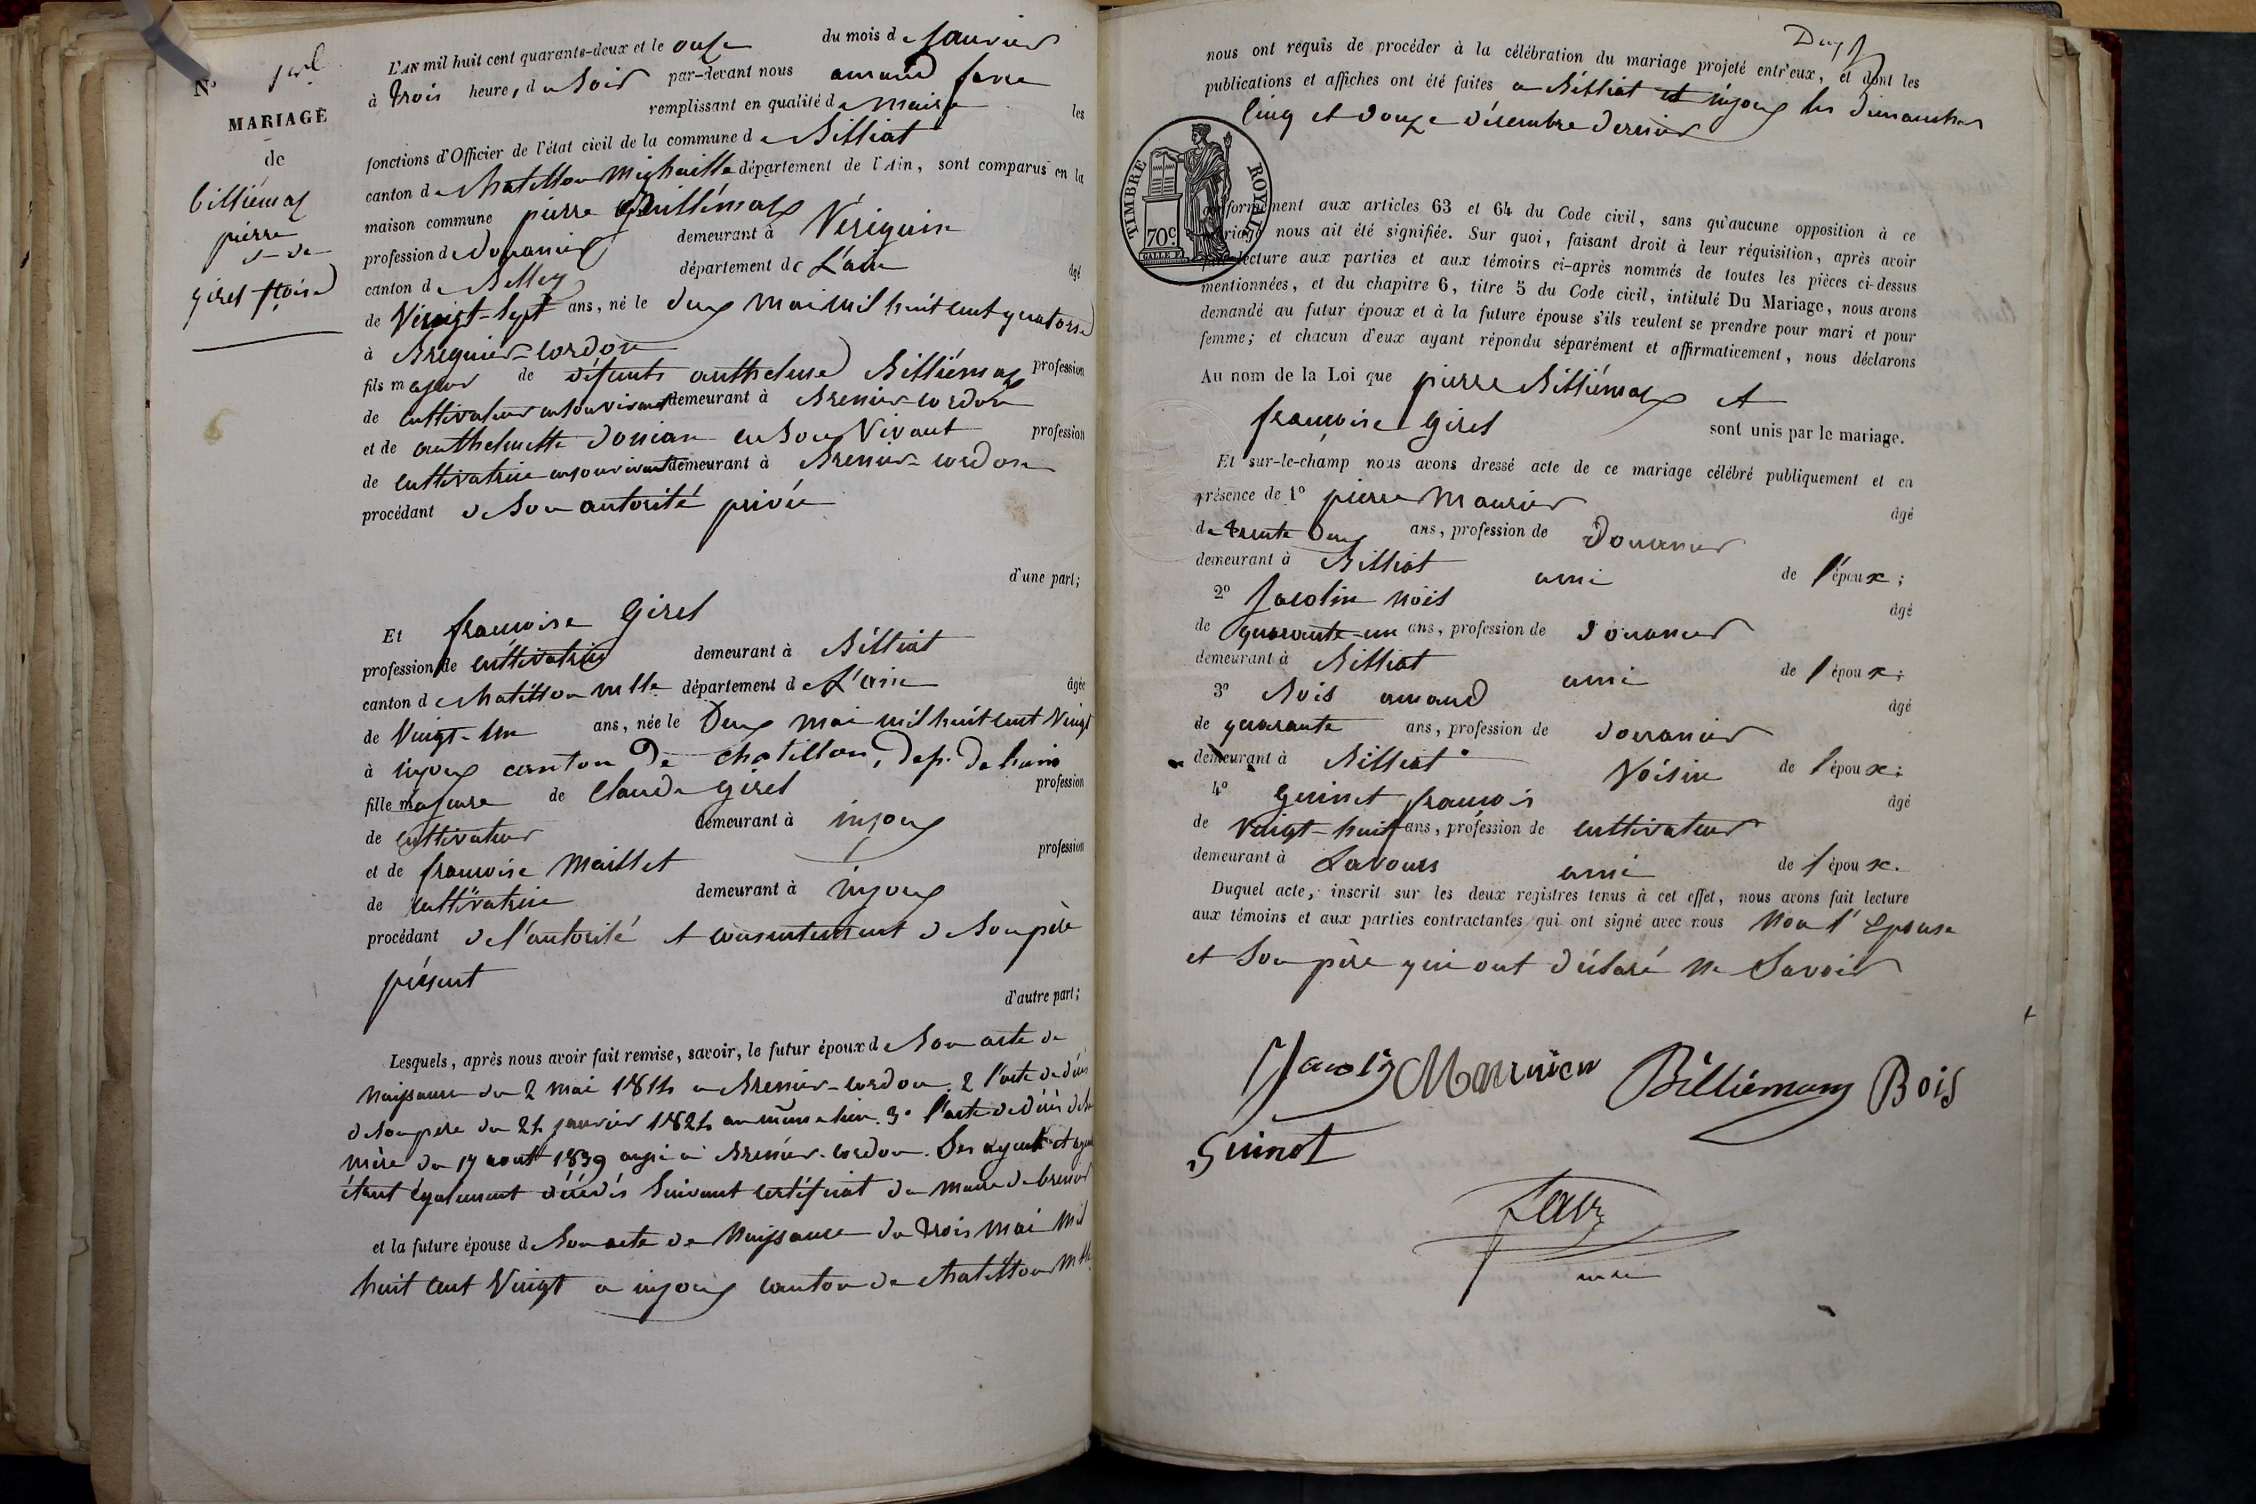 N° 1er
MARIAGE
de
billiémaz
pierre
giret fçoise
L'AN mil huit cent quarante-deux et le onze du mois de janvier
à trois heure, du soir par-devant nous amand favre
remplissant en qualité de maire les
fonctions d'Officier de l'état civil de la commune de Billiat
canton de chatillon Michaille département de l'Ain, sont comparus en la
maison commune pierre Billiémaz
profession de douanier demeurant à
canton de Belley département de L'ain âgé
de Vingt-Sept ans, né le deux mai mil huit cent quatorze
à Bregnier-cordon
fils majeur de défunts anthelme Billiémaz profession
de cultivateur en son vivant demeurant à Brenier cordon
et de anthelmette en son Vivant profession
de cultivatrice en son vivant demeurant à Brenier-cordon
procédant de Son autorité privée
d'une part;
Et françoise Giret
profession de cultivatrice demeurant à Billiat
canton de chatillon mlle département de L'ain âgée
de Vingt-Un ans, née le Deux mai mil huit cent Vingt
à injoux canton de chatillon, dep. de l'ain
fille majeure de Claude giret profession
de cultivateur demeurant à injoux
et de françoise Maillet profession
de cultivatrice demeurant à injoux
procédant de l'autorité et consentement de Son père
présent
d'autre part;
Lesquels, après nous avoir fait remise, savoir, le futur époux de Son acte de
Naissance du 2 mai 1814 a Brenier-cordon. 2 l'acte de décès
de Son père du 24 janvier 1824 au même lieu. 3° l'acte de décès de Sa
mère du 17 aout 1839 aussi à Brenier-cordon. Ses ayeuls et ayeules
étant également décédés Suivant certificat du maire de brenier
et la future épouse de Son acte de Naissance du trois mai mil
huit cent Vingt a injoux canton de chatillon mlle
Deux
nous ont requis de procéder à la célébration du mariage projeté entr'eux, et dont les
publications et affiches ont été faites a Billiat et injoux les dimanches
cinq et douze décembre dernier
TIMBRE ROYAL
70c.
conformément aux articles 63 et 64 du Code civil, sans qu'aucune opposition à ce
mariage nous ait été signifiée. Sur quoi, faisant droit à leur réquisition, après avoir
fait lecture aux parties et aux témoins ci-après nommés de toutes les pièces ci-dessus
mentionnées, et du chapitre 6, titre 5 du Code civil, intitulé Du Mariage, nous avons
demandé au futur époux et à la future épouse s'ils veulent se prendre pour mari et pour
femme; et chacun d'eux ayant répondu séparément et affirmativement, nous déclarons
Au nom de la Loi que pierre Billiémaz et
françoise giret sont unis par le mariage.
Et sur-le-champ nous avons dressé acte de ce mariage célébré publiquement et en
présence de 1° pierre Maurier âgé
de trente deux ans, profession de Douanier
demeurant à Billiat ami de l'époux;
2° Jacolin noël âgé
de quarante-un ans, profession de Douanier
demeurant à Billiat ami de l'époux;
3° Bois amand âgé
de quarante ans, profession de douanier
demeurant à Billiat Voisin de l'époux;
4° guinet françois âgé
de Vingt-huit ans, profession de cultivateur
demeurant à Lavours ami de l'époux.
Duquel acte, inscrit sur les deux registres tenus à cet effet, nous avons fait lecture
aux témoins et aux parties contractantes qui ont signé avec nous Non l'Epouse
et Son père qui ont déclaré ne Savoir
Billiémaz Bois
Guinet
favre
maire